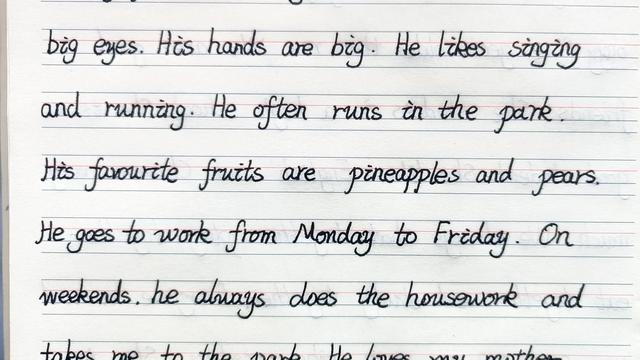 big eyes. His hands are big. He likes singing
and running. He often runs in the park.
His favourite fruits are pineapples and pears.
He goes to work from Monday to Friday. On
weekends. he always does the housework and
takes me to the park. He loves my mother